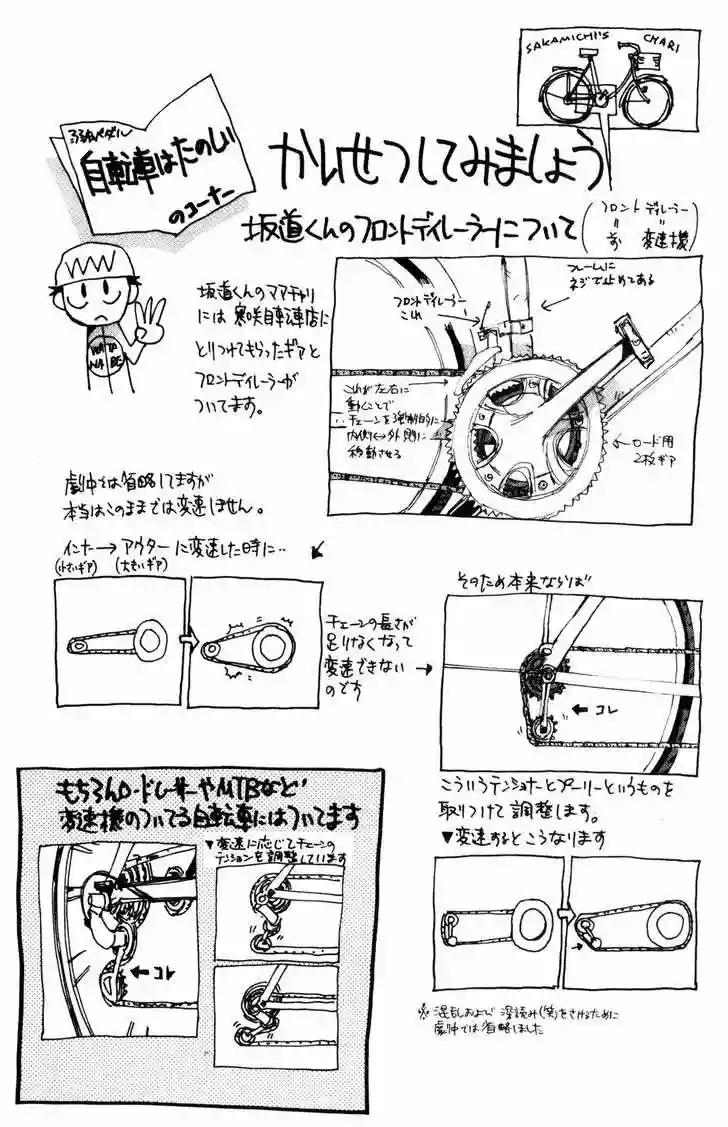 SAKAMICHI'S CHARI
弱虫ペダル
自転車はたのしい
のコーナー
かいせつしてみましょう
坂道くんのフロントディレーラーについて
フロントディレーラー
〃
変速機
坂道くんのママチャリ
には寒咲自転車店に
とりつけてもらったギアと
フロントディレーラーが
ついてます。
WATA
NABE
フロントディレーラー
これ
フレームに
ネジで止めてある
これが左右に
動くことで
チェーンを強制的に
内側↔外側に
移動させる
ロード用
2枚ギア
劇中では省略してますが
本当はこのままでは変速しません。
インナー→アウターに変速した時に‥
(小さいギア) (大きいギア)
チェーンの長さが
足りなくなって
変速できない
のです
そのため本来ならば
コレ
こういうテンショナーとプーリーというものを
取りつけて調整します。
▼変速するとこうなります
※混乱および深読み(笑)をさけるために
劇中では省略しました
もちろんロードレーサーやMTBなど
変速機のついてる自転車にはついてます
コレ
▼変速に応じてチェーンの
テンションを調整しています